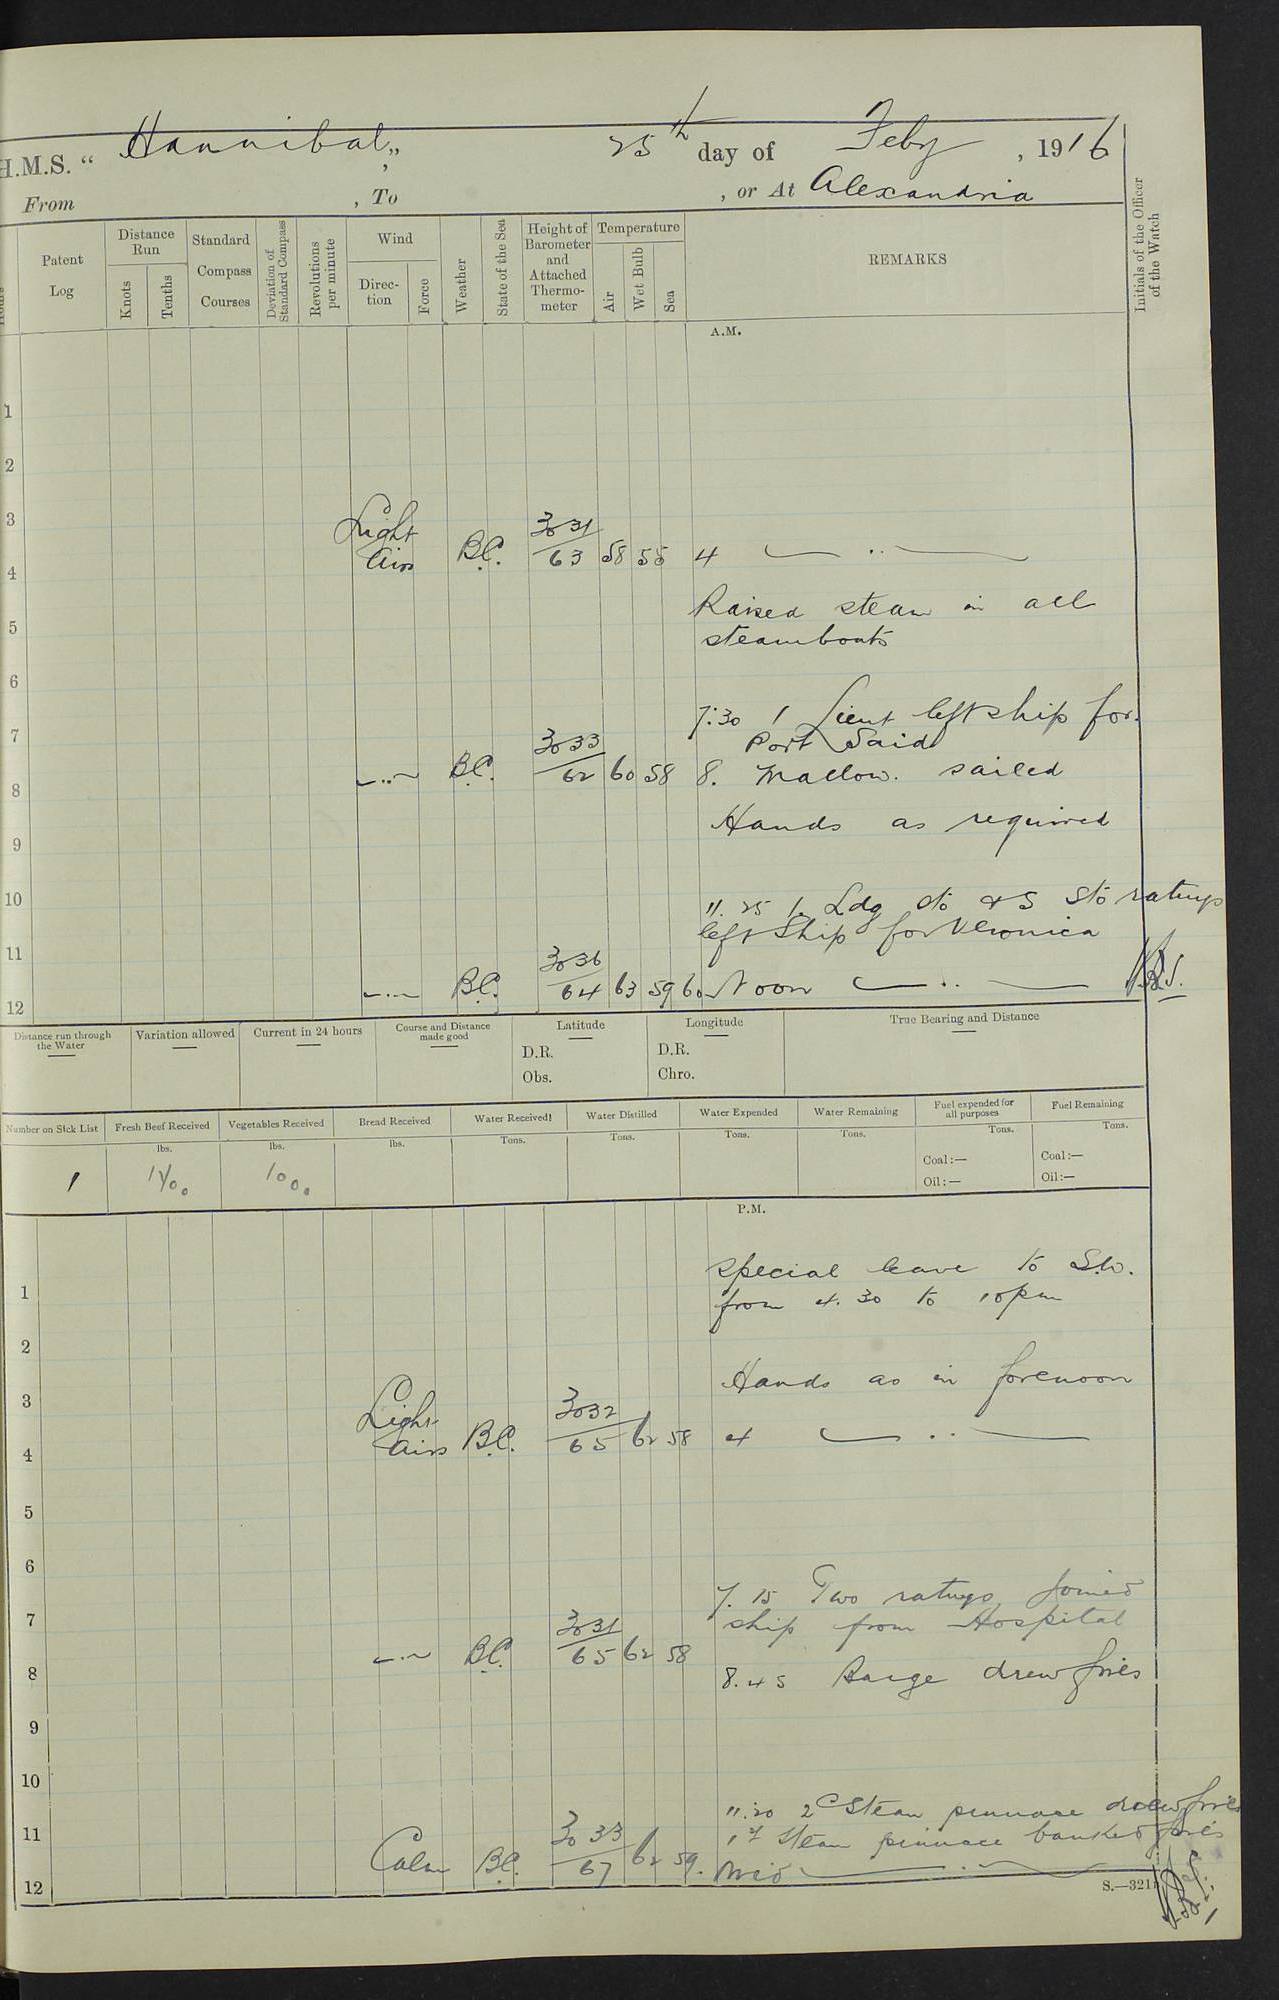 H.M.S. “ Hannibal „ 25th day of Feby , 1916
From , To , or At Alexandria
Patent Log
Distance Run
Knots
Tenths
Standard Compass Courses
Deviation of Standard Compass
Revolutions per minute
Wind
Direc-tion
Force
Weather
State of the Sea
Height of Barometer and Attached Thermo-meter
Temperature
Air
Wet Bulb
Sea
REMARKS
Initials of the Officer of the Watch
A.M.
1
2
3
Light Airs B.C. 3031/63 58 55 4 —..—
4
Raised steam in all
5
steamboats
6
7.30 1 Lieut left ship for
7
Port Said
—..— B.C. 3033/62 60 58 8. Mallow. sailed
8
Hands as required
9
10
11.25 1. Ldg Sto & 5 Sto ratings
left ship for Veronica
11
—..— B.C. 3036/64 63 59 60 Noon —..—
12
Distance run through the Water
Variation allowed
Current in 24 hours
Course and Distance made good
Latitude
D.R.
Obs.
Longitude
D.R.
Chro.
True Bearing and Distance
Number on Sick List
Fresh Beef Received
Vegetables Received
Bread Received
Water Received
Water Distilled
Water Expended
Water Remaining
Fuel expended for all purposes
Fuel Remaining
lbs. lbs. lbs. Tons. Tons. Tons. Tons. Tons. Tons.
Coal:— Coal:—
Oil:— Oil:—
1 1000
P.M.
special leave to S.W.
1
from 4.30 to 10pm
2
Hands as in forenoon
3
Light Airs B.C. 3032/65 62 58 4 —..—
4
5
6
7.15 Two ratings joined
7
ship from Hospital
—..— B.C. 3031/65 62 58
8
8.45 Barge drew fires
9
10
11.20 2d Steam pinnace drew fires
11
1st Steam pinnace banked fires
Calm B.C. 3033/67 62 59. Mid —..—
12
S.—321